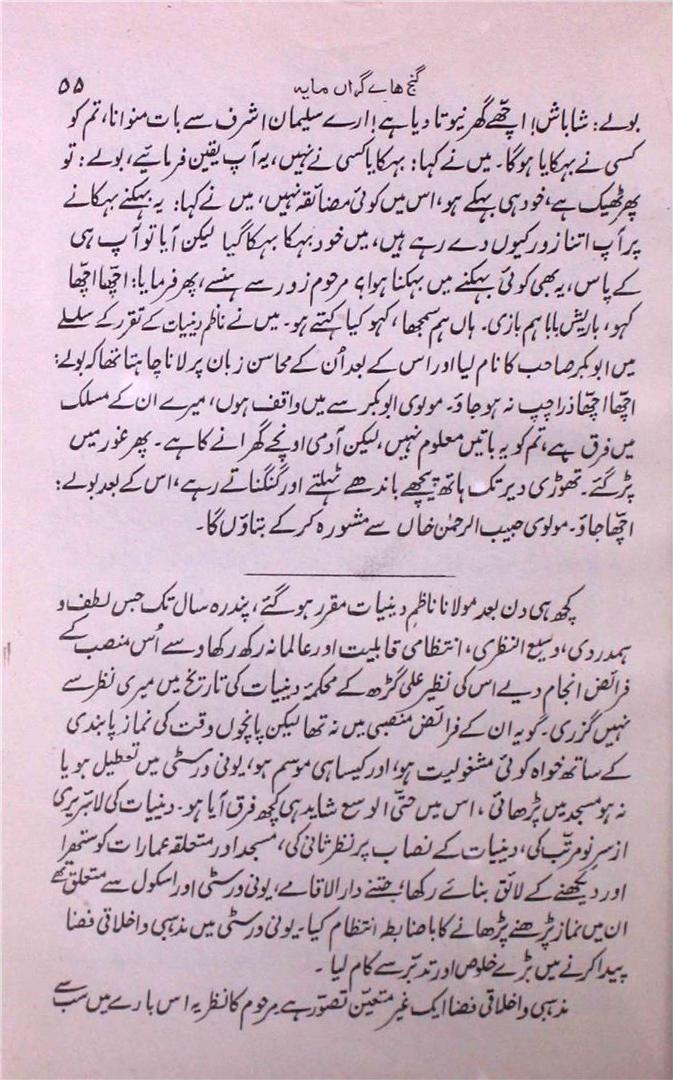 گنج هاے گراں مایہ ۵۵
بولے: شاباش! اچھے گھر نیوتا دیا ہے! ارے سلیمان اشرف سے بات منوانا، تم کو
کسی نے بہکایا ہوگا۔ میں نے کہا: بہکایا کسی نے نہیں، یہ آپ یقین فرمائیے، بولے: تو
پھر ٹھیک ہے، خود ہی بہکے ہو، اس میں کوئی مضائقہ نہیں، میں نے کہا: یہ بہکنے بہکانے
پر آپ اتنا زور کیوں دے رہے ہیں، میں خود بہکا بہکا گیا لیکن آیا تو آپ ہی
کے پاس، یہ بھی کوئی بہکنے میں بہکنا ہوا؟ مرحوم زور سے ہنسے، پھر فرمایا: اچھا اچھا
کہو، باریش بابا ہم بازی۔ ہاں ہم سمجھا، کہو کیا کہتے ہو۔ میں نے ناظم دینیات کے تقرر کے سلسلے
میں ابوبکر صاحب کا نام لیا اور اس کے بعد اُن کے محاسن زبان پر لانا چاہتا تھا کہ بولے:
اچھا اچھا ذرا چپ نہ ہو جاؤ۔ مولوی ابوبکر سے میں واقف ہوں، میرے ان کے مسلک
میں فرق ہے، تم کو یہ باتیں معلوم نہیں، لیکن آدمی اونچے گھرانے کا ہے۔ پھر غور میں
پڑ گئے۔ تھوڑی دیر تک ہاتھ پیچھے باندھے ٹہلتے اور گنگناتے رہے، اس کے بعد بولے:
اچھا جاؤ۔ مولوی حبیب الرحمٰن خاں سے مشورہ کر کے بتاؤں گا۔
کچھ ہی دن بعد مولانا ناظمِ دینیات مقرر ہو گئے، پندرہ سال تک جس لطف و
ہمدردی، وسیع النظری، انتظامی قابلیت اور عالمانہ رکھ رکھاو سے اُس منصب کے
فرائض انجام دیے اس کی نظیر علی گڑھ کے محکمۂ دینیات کی تاریخ میں میری نظر سے
نہیں گزری۔ گو یہ ان کے فرائض منصبی میں نہ تھا لیکن پانچوں وقت کی نماز پابندی
کے ساتھ خواہ کوئی مشغولیت ہو، اور کیسا ہی موسم ہو، یونی ورسٹی میں تعطیل ہو یا
نہ ہو مسجد میں پڑھائی، اس میں حتّی الوسع شاید ہی کچھ فرق آیا ہو۔ دینیات کی لائبریری
از سرِ نو مرتّب کی، دینیات کے نصاب پر نظر ثانی کی، مسجد اور متعلقہ عمارات کو ستھرا
اور دیکھنے کے لائق بنائے رکھا، جتنے دار الاقامے، یونی ورسٹی اور اسکول سے متعلق تھے
ان میں نماز پڑھنے پڑھانے کا باضابطہ انتظام کیا۔ یونی ورسٹی میں مذہبی و اخلاقی فضا
پیدا کرنے میں بڑے خلوص اور تدبّر سے کام لیا۔
مذہبی و اخلاقی فضا ایک غیر متعیّن تصوّر ہے۔ مرحوم کا نظریہ اس بارے میں سب سے